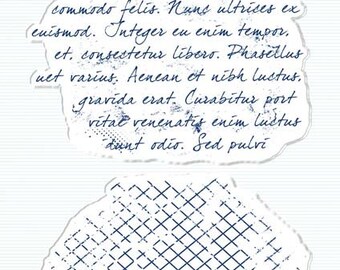 commodo felis. Nunc ultrices ex
euismod. Integer eu enim tempor,
et, consectetur libero. Phasellus
uet varius. Aenean et nibh luctus,
gravida erat. Curabitur port
vitae venenatis enim luctus
dunt odio. Sed pulvi